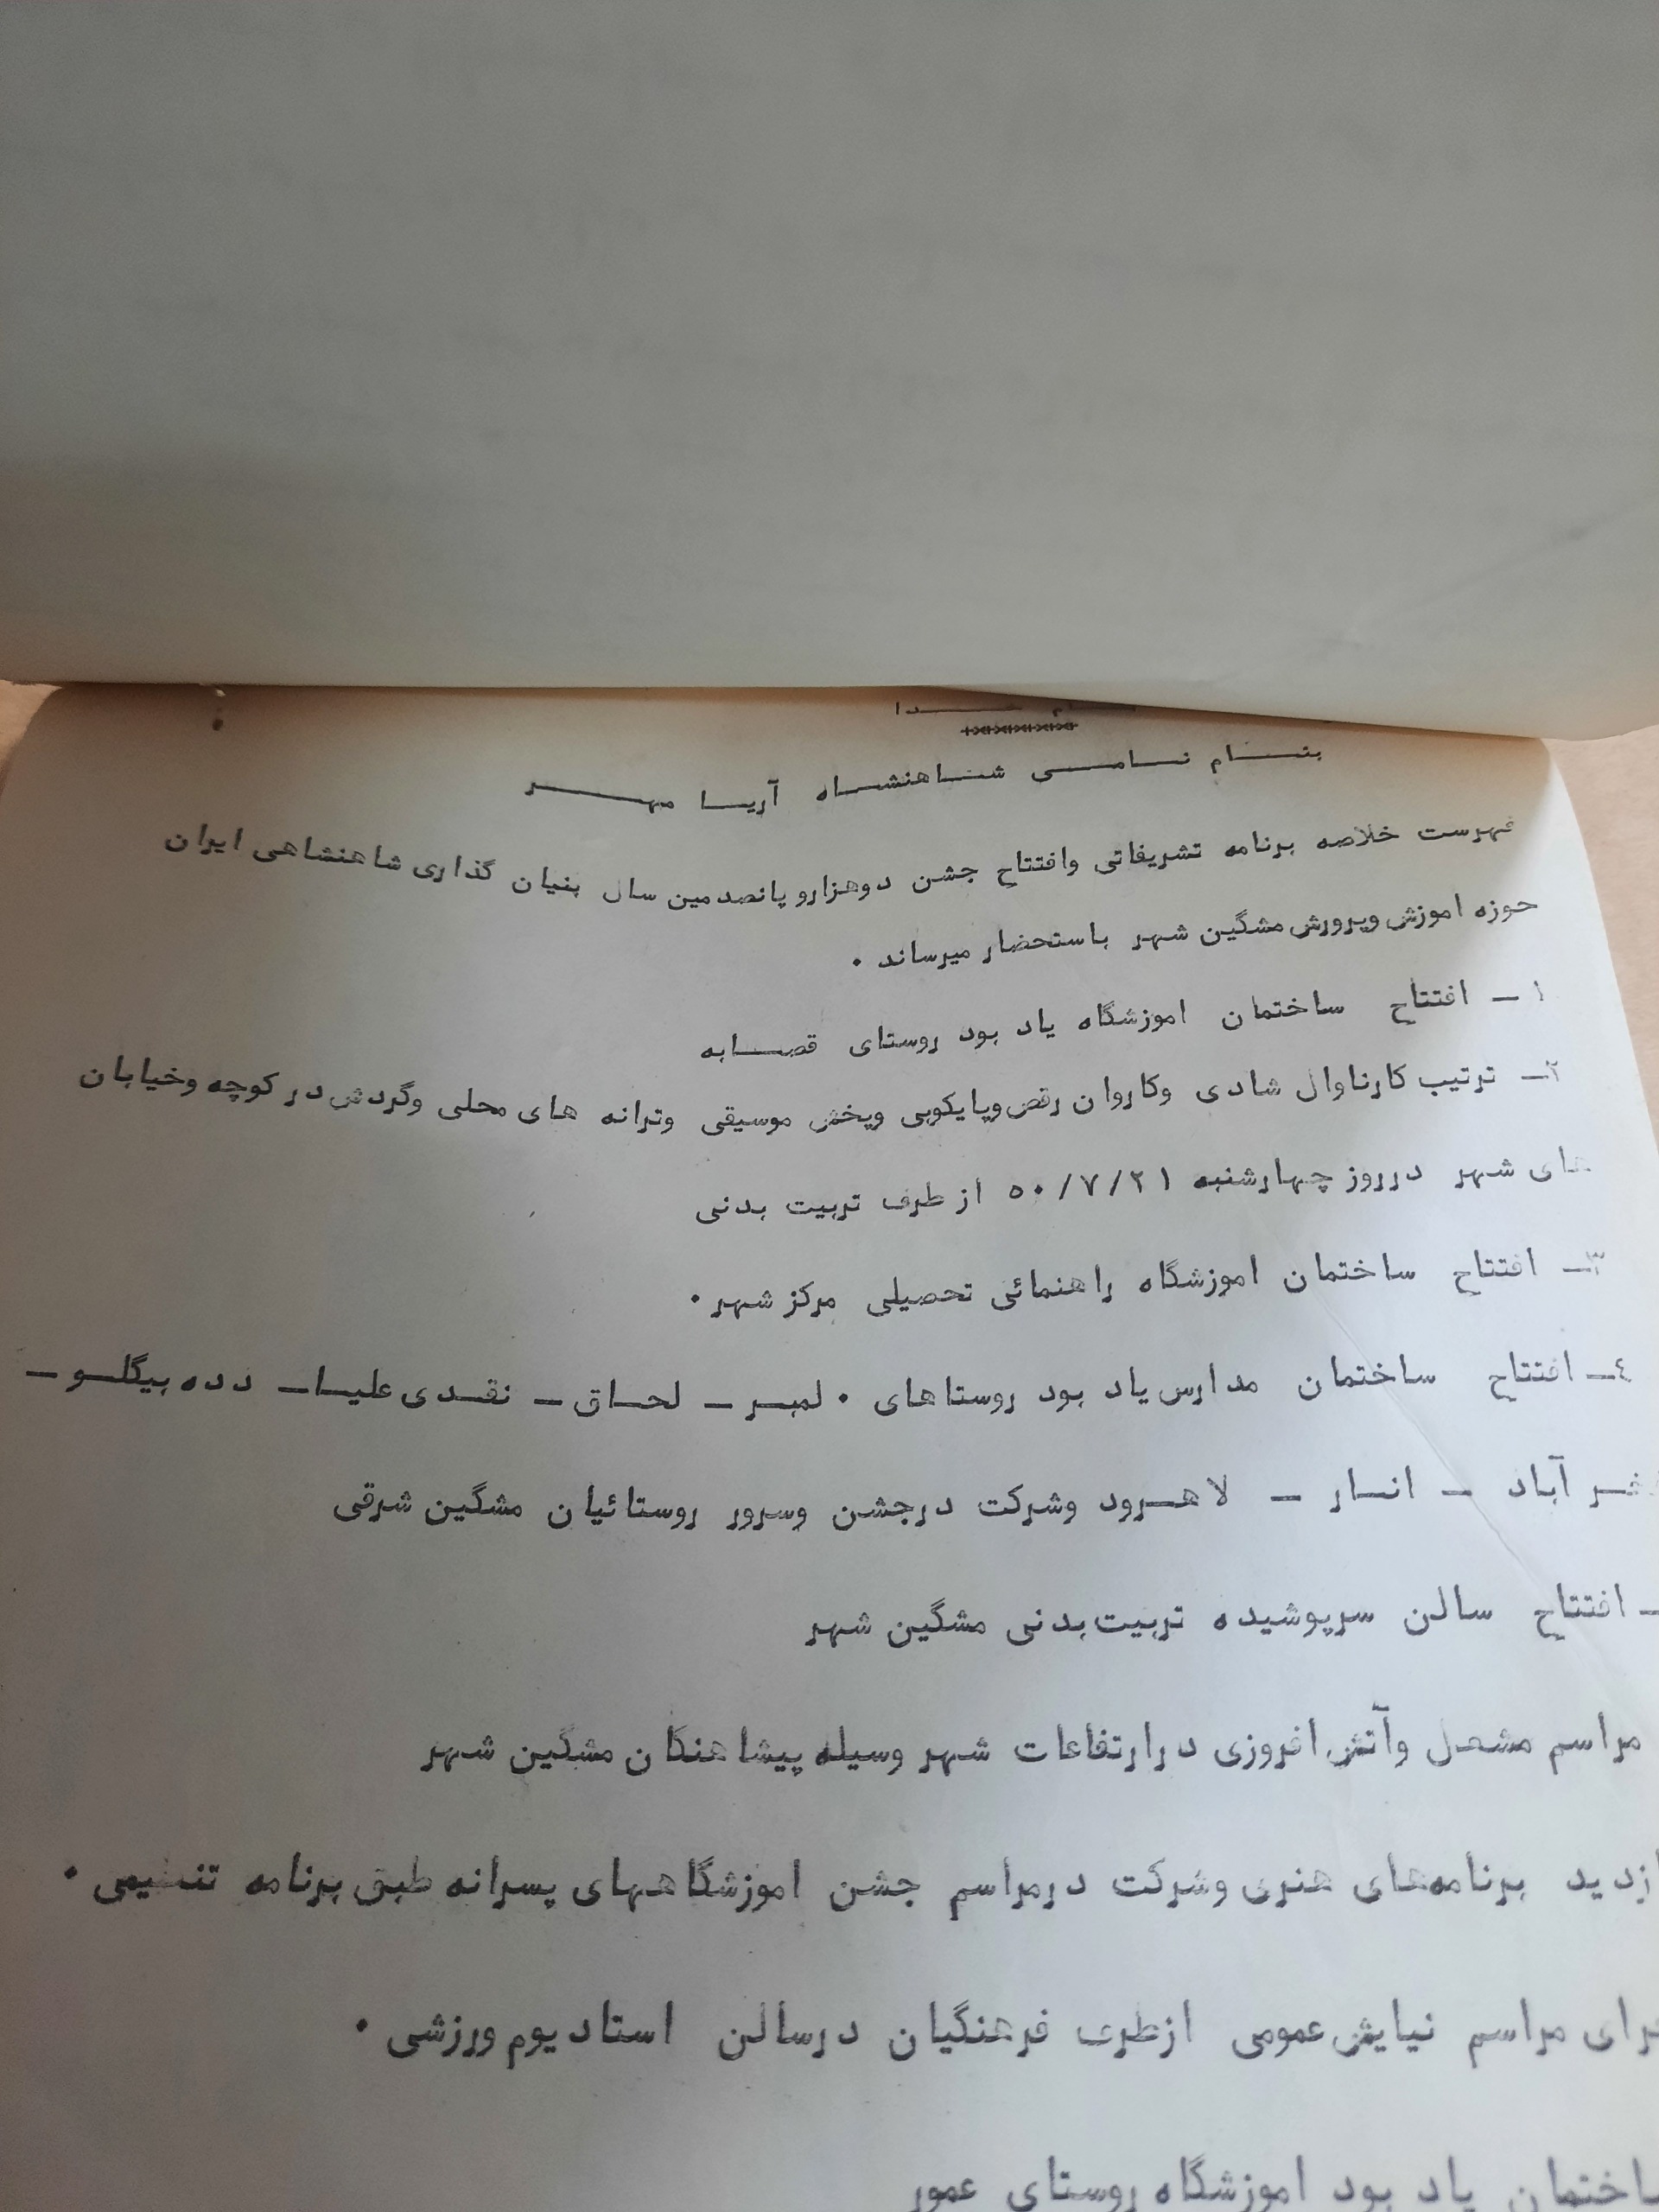 بنام نامی شاهنشاه آریا مهر
فهرست خلاصه برنامه تشریفاتی وافتتاح جشن دوهزارو پانصدمین سال بنیان گذاری شاهنشاهی ایران
حوزه اموزش وپرورش مشگین شهر باستحضار میرساند ۰
۱ – افتتاح ساختمان اموزشگاه یاد بود روستای قصابه
۲– ترتیب کارناوال شادی وکاروان رقص وپایکوبی وپخش موسیقی وترانه های محلی وگردش در کوچه وخیابان
های شهر درروز چهارشنبه ۵۰/۷/۲۱ از طرف تربیت بدنی
۳– افتتاح ساختمان اموزشگاه راهنمائی تحصیلی مرکز شهر ۰
٤– افتتاح ساختمان مدارس یاد بود روستاهای ۰ لمبر – لحاق – نقدی علیا – دده بیگلو –
آباد – انار – لاهرود وشرکت درجشن وسرور روستائیان مشگین شرقی
– افتتاح سالن سرپوشیده تربیت بدنی مشگین شهر
مراسم مشعل وآتش افروزی درارتفاعات شهر وسیله پیشاهنگان مشگین شهر
برنامه‌های هنری وشرکت درمراسم جشن اموزشگاههای پسرانه طبق برنامه تنظیمی ۰
مراسم نیایش عمومی ازطرف فرهنگیان درسالن استادیوم ورزشی ۰
یاد بود اموزشگاه روستای